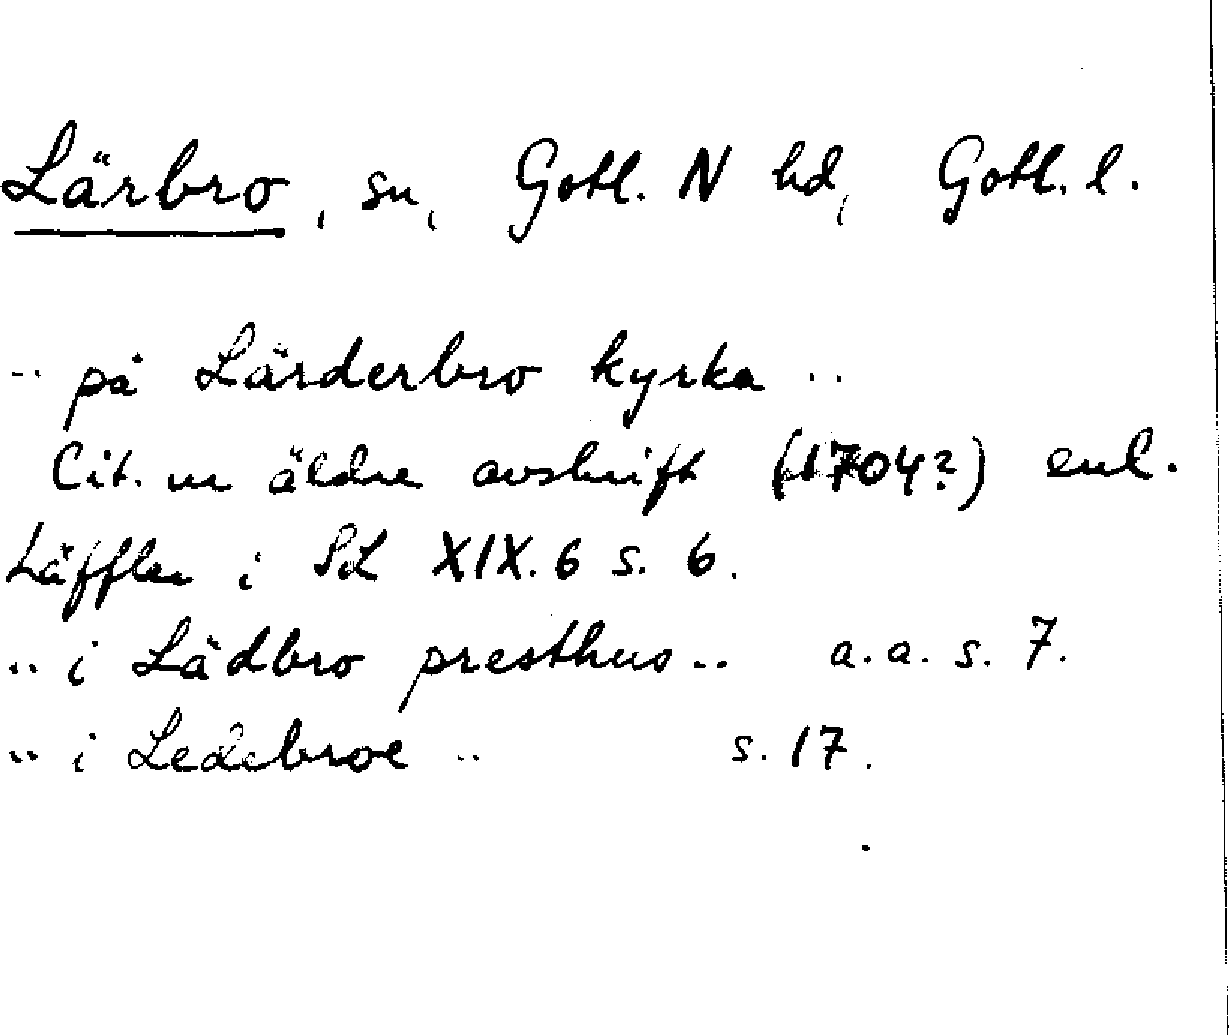 Lärbro, sn, Gotl. N hd, Gotl. l.
.. på Lärderbro kyrka ..
Cit. ur äldre avskrift (1704?) enl.
Läffler i SL XIX.6 s. 6.
.. i Lädbro presthus .. a.a. s. 7.
.. i Ledebroe .. s. 17.